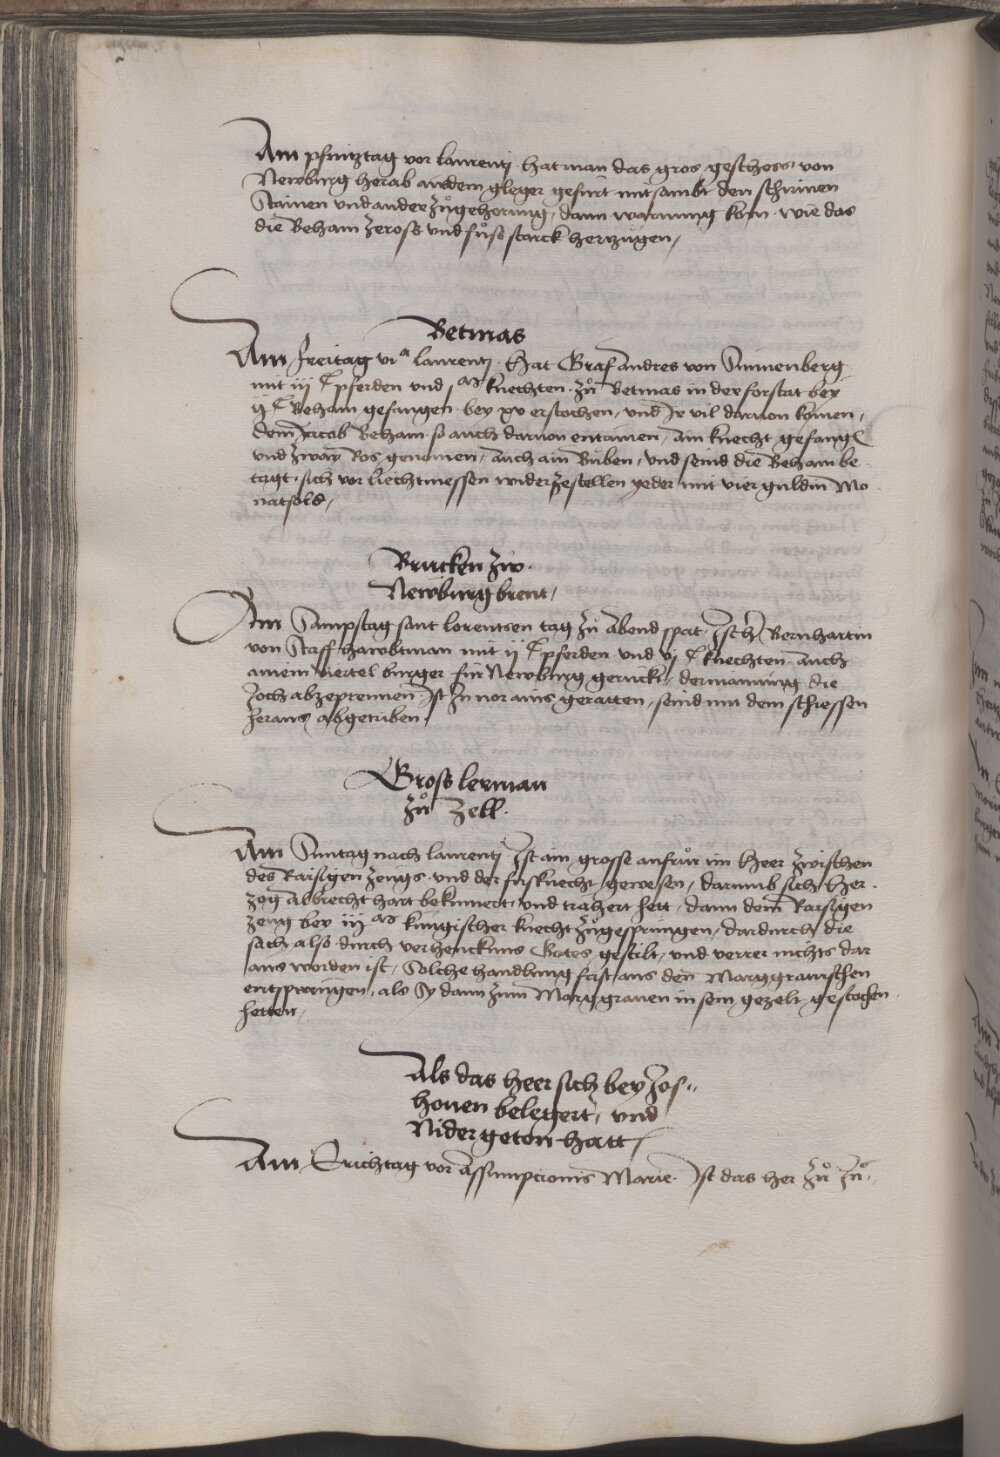 Am pfintztag vor laurentj hat man das gros geschoss von
Newburg herab aus dem gleger gefürt mit sambt den schirmen
Stainen vnd ander zůgehorung, dann warnung kom wie das
die Beham zeross vnd fůss starck herzugen,
Betmas
Am freitag vi a laurentj hat Graf andres von Sunnenberg
mit iij c pferden vnd j m knechten zů Betmas in der forstat bey
ij c Beham gefangen bey xv erstochen, vnd Ir vil daruon komen,
dem Jacob Beham so auch daruon entrunen, ain knecht gefang
vnd zway Ros genomen, auch ain Buben, vnd seind die Beham be
tagt sich vor liechtmessen wider zestellen yeder mit vier guldin Mo
natsold,
Brucken zw
Newburg brent,
Am Sampstag sant lorentzen tag zů abend spat Ist her Bernhartin
von Stauff haubtman mit ij c pferden vnd vj c knechten auch
ainem viertel burger für Newburg geruckt, der mainung die
Joch abzeprennen Ist In nor ains geraiten, seind mit dem schiessen
heraus abgetriben,
Gross lerman
zů Zell.
Am Suntag nach laurentj Ist ain grosse aufrůr im Heer zwischen
des Raisigen zeugs vnd der fusknecht gewesen, darumb sich Her
zog Albrecht hart bekumert vnd trahert hett, dann dem Raisigen
zeug bey iij m kungischer knecht zůgesprungen, dardurch die
sach also durch verhencknus Gotes gestilt, vnd verrer nichts dar
aus worden ist, Solche handlung fast aus den Marggrauischen
entsprungen, als Sy dann zum Marggrauen in sein gezelt gestochen
hetten,
Als das heer sich bey Jos
houen belegert, vnd
Nider geton hatt
Am Erichtag vor Assumpcionis Marie Ist das her zů Jn